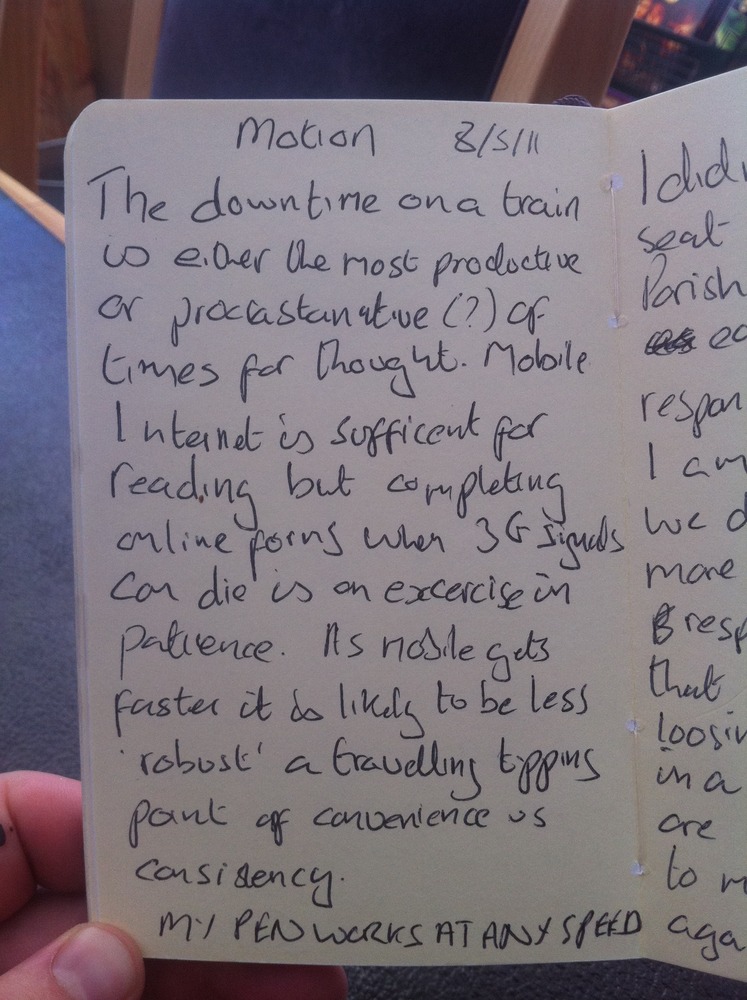 Motion 8/5/11
The downtime on a train
is either the most productive
or procrastanative (?) of
times for thought. Mobile
Internet is sufficent for
reading but completing
online forms when 3G signals
can die is an excercise in
patience. As mobile gets
faster it is likely to be less
'robust' a travelling tipping
point of convenience vs
consistency.
MY PEN WORKS AT ANY SPEED
I did
seat
Parish
respon
I am
we d
more
resp
that
loosin
in a
are
to m
aga